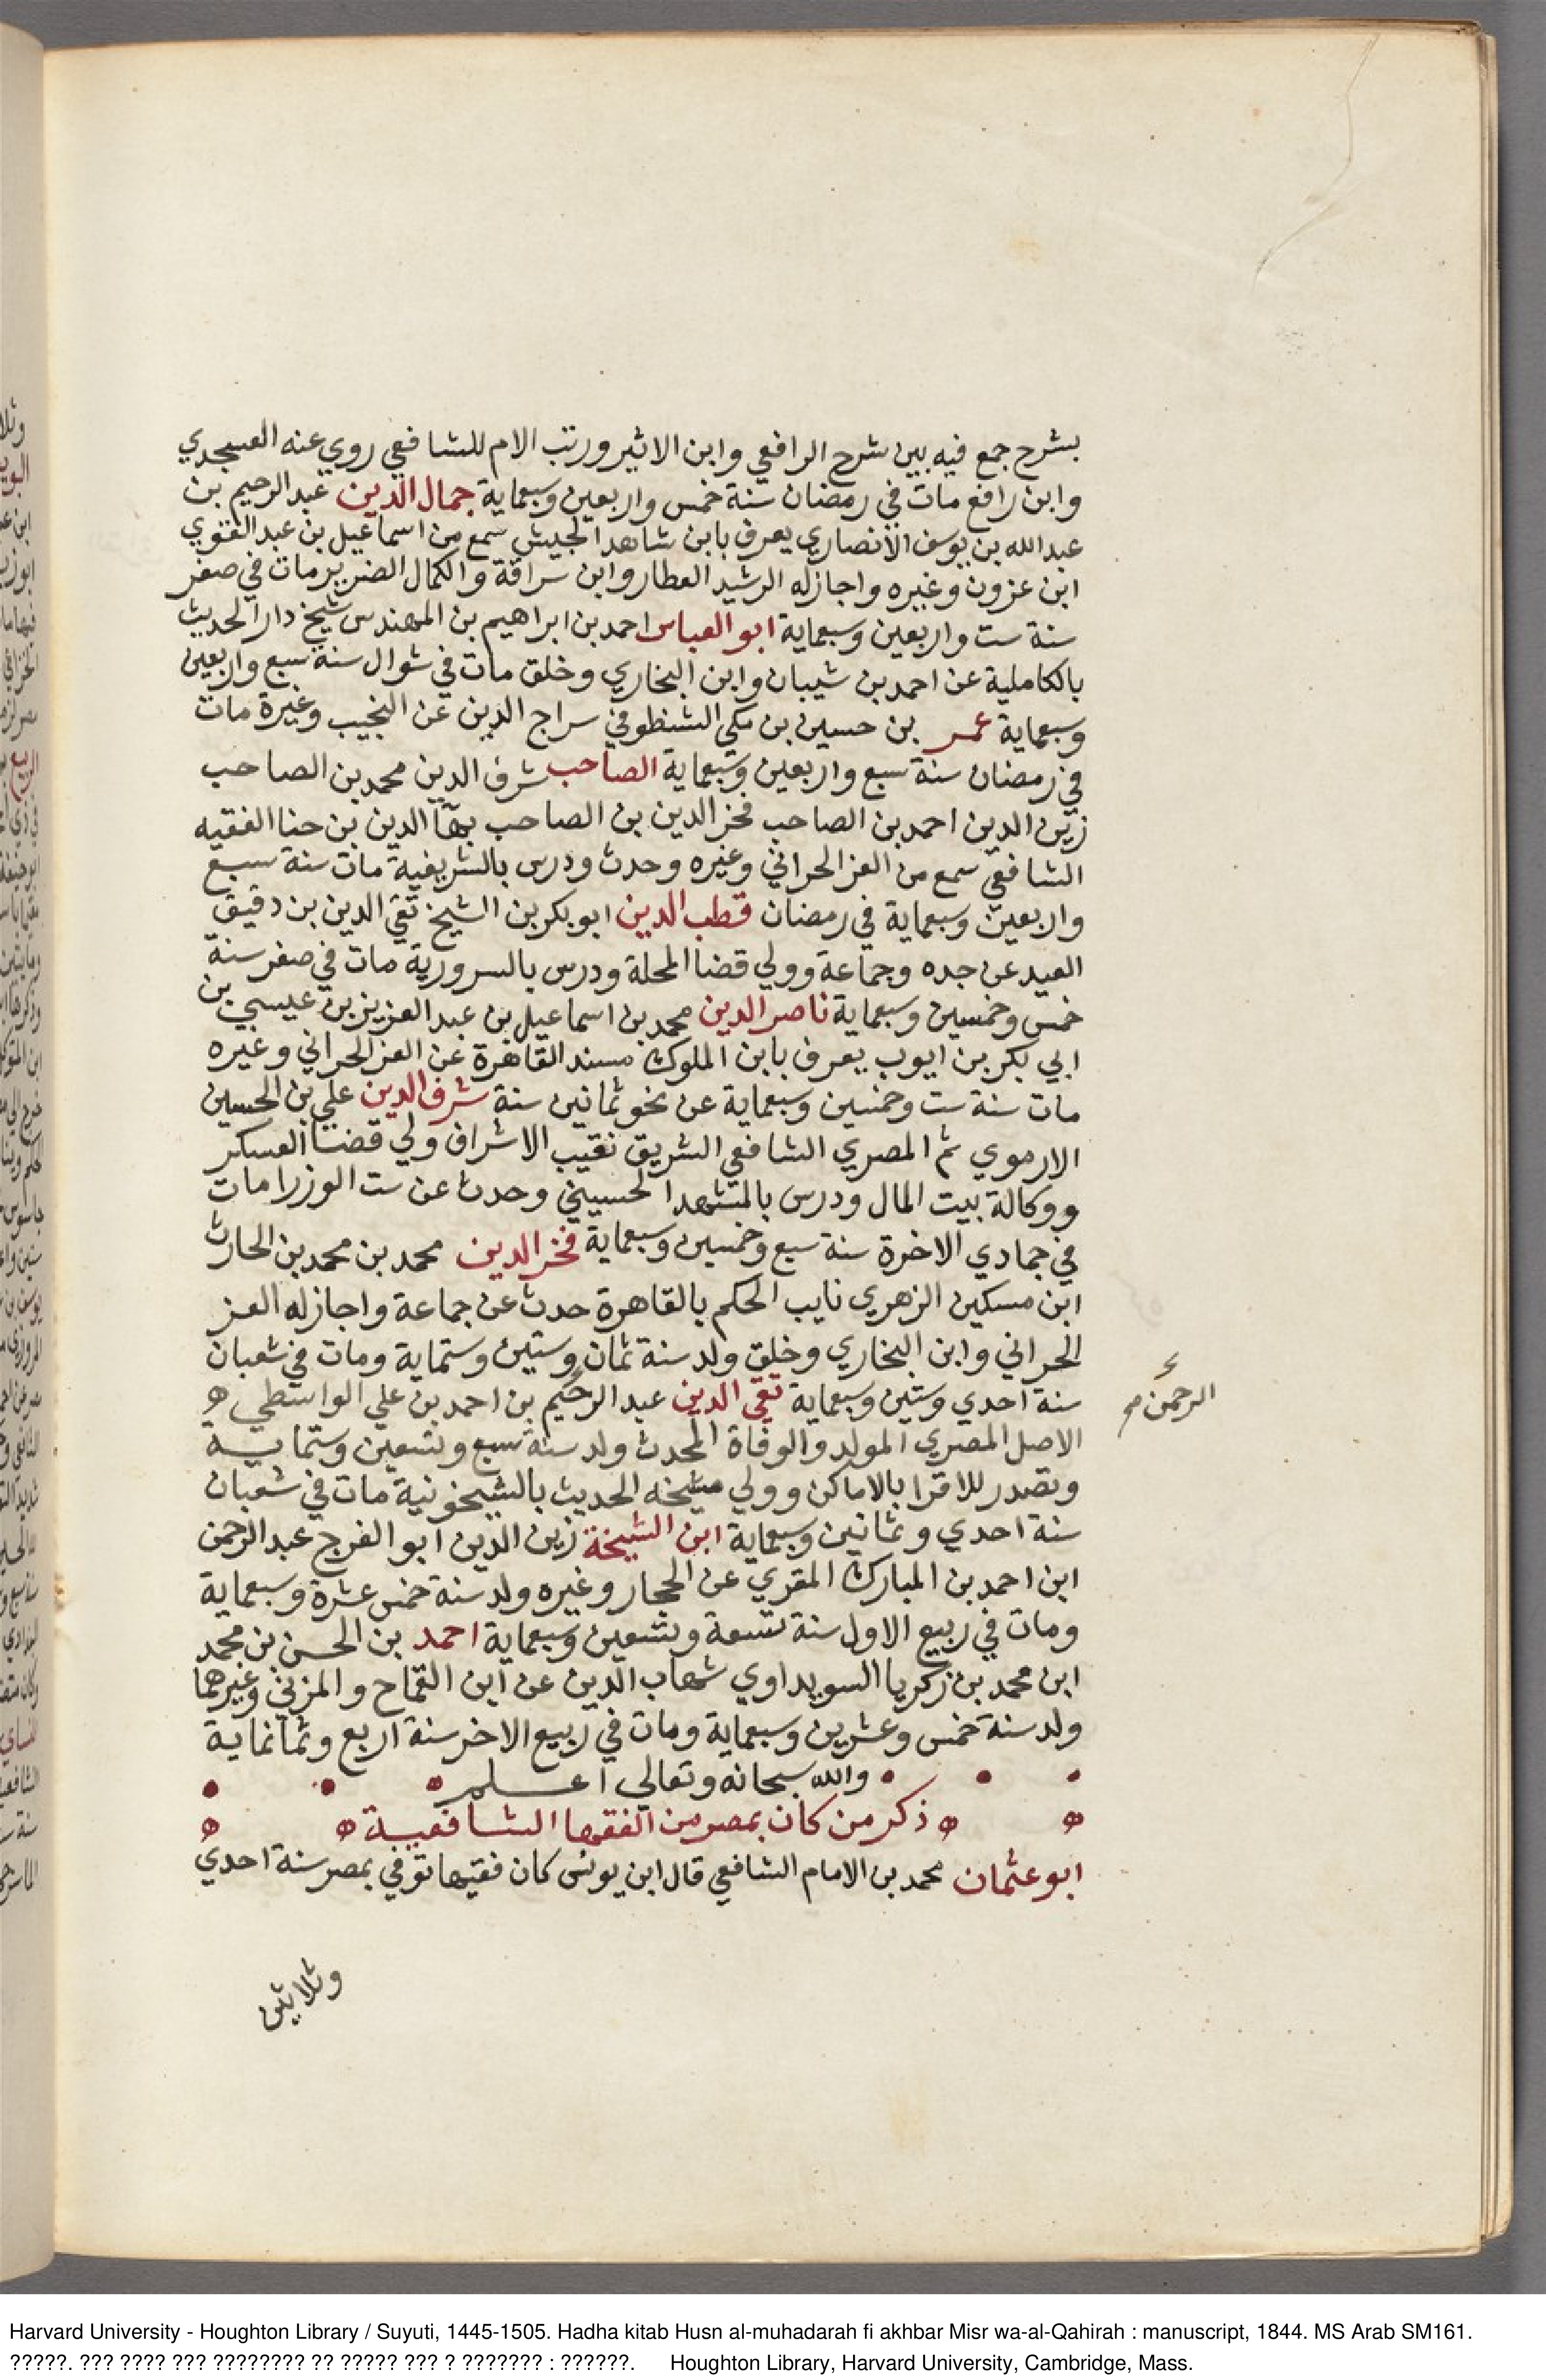 بشرح جمع فيه بين شرح الرافعي وابن الاثير ورتب الام للشافعي روي عنه العسجدي
وابن رافع مات في رمضان سنة خمس واربعين وسبعماية جمال الدين عبد الرحيم بن
عبد الله بن يوسف الأنصاري يعرف بابن شاهد الجيش سمع من اسماعيل بن عبد القوي
ابن عزون وغيره واجاز له الرشيد العطار وابن سراقة والكمال الضرير مات في صفر
سنة ست واربعين وسبعماية ابو العباس احمد بن ابراهيم بن المهندس شيخ دار الحديث
بالكاملية عن احمد بن شيبان وابن البخاري وخلق مات في شوال سنة سبع واربعين
وسبعماية عمر بن حسين بن مكي الشنطوفي سراج الدين عن النجيب وغيرة مات
في رمضان سنة سبع واربعين وسبعماية الصاحب شرف الدين محمد بن الصاحب
زين الدين احمد بن الصاحب فخر الدين بن الصاحب بهآ الدين بن حنا الفقيه
الشافعي سمع من العز الحراني وغيره وحدث ودرس بالشريفية مات سنة سبع
واربعين وسبعماية في رمضان قطب الدين ابو بكر بن الشيخ تقي الدين بن دقيق
العيد عن جده وجماعة وولي قضا المحلة ودرس بالسرورية مات في صفر سنة
خمس وخمسين وسبعماية ناصر الدين محمد بن اسماعيل بن عبد العزيز بن عيسي بن
ابي بكر بن ايوب يعرف بابن الملوك مسند القاهرة عن العز الحراني وغيره
مات سنة ست وخمسين وسبعماية عن نحو ثمانين سنة شرف الدين علي بن الحسين
الارموي ثم المصري الشافعي الشريف نقيب الاشراف ولي قضا العسكر
ووكالة بيت المال ودرس بالمشهد الحسيني وحدث عن ست الوزرا مات
في جمادي الاخرة سنة سبع وخمسين وسبعماية فخر الدين محمد بن محمد بن الحارث
ابن مسكين الزهري نايب الحكم بالقاهرة حدث عن جماعة واجاز له العز
الحراني وابن البخاري وخلق ولد سنة ثمان وستين وستماية ومات في شعبان
سنة احدي وستين وسبعماية تقي الدين عبد الرحيم بن احمد بن علي الواسطي ه
الرحمن
الاصل المصري المولد والوفاة المحدث ولد سنة سبع وتسعين وستماية
وتصدر للاقرا بالاماكن وولي مشيخه الحديث بالشيخونية مات في شعبان
سنة احدي وثمانين وسبعماية ابن الشيخة زين الدين ابو الفرج عبد الرحمن
ابن احمد بن المبارك المقري عن الحجار وغيره ولد سنة خمس عشرة وسبعماية
ومات في ربيع الاول سنة تسعة وتسعين وسبعماية احمد بن الحسن بن محمد
ابن محمد بن زكريا السويداوي شهاب الدين عن ابن القماح والمزني وغيرهما
ولد سنة خمس وعشرين وسبعماية ومات في ربيع الاخر سنة اربع وثمانماية
والله سبحانه وتعالي اعلم
ه ه ذكر من كان بمصر من الفقها الشافعية ه ه
ابو عثمان محمد بن الامام الشافعي قال ابن يونس كان فقيها توفي بمصر سنة احدي
وثلاثين
Harvard University - Houghton Library / Suyuti, 1445-1505. Hadha kitab Husn al-muhadarah fi akhbar Misr wa-al-Qahirah : manuscript, 1844. MS Arab SM161.
?????. ??? ???? ??? ???????? ?? ????? ??? ? ??????? : ??????. Houghton Library, Harvard University, Cambridge, Mass.